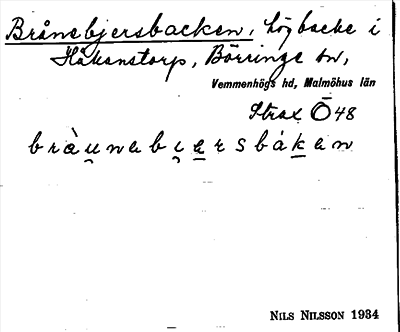 Brånsbjersbacken, hög backe i
Håkanstorp, Börringe sn,
Vemmenhögs hd, Malmöhus län
Strax Ö 48
bràu̯nabi̯ersbákan
NILS NILSSON 1934